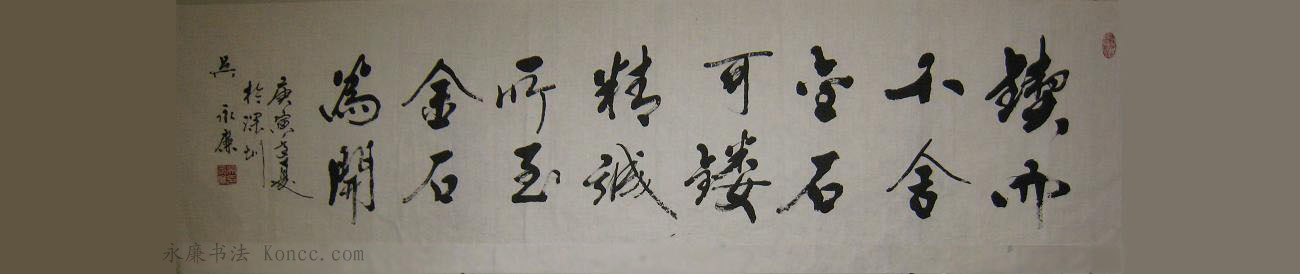 鍥而
不舍
金石
可鏤
精誠
所至
金石
為開
庚寅孟夏
於深圳
吴永廉
永廉书法 Koncc.com